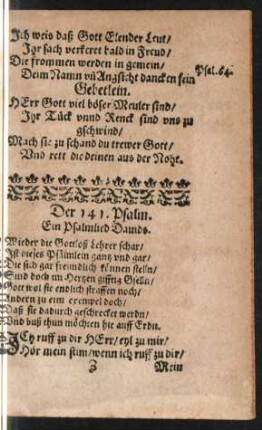 Ich weis daß Gott Elender Leut/
Ihr sach verkeret bald in Freud/
Die frommen werden in gemein/
Deim Namn vñ Angsicht dancken fein
Psal. 64.
Gebetlein.
HErr Gott viel böser Meuler sind/
Ihr Tück vnnd Renck sind vns zu
gschwind/
Mach sie zu schand du trewer Gott/
Vnd rett die deinen aus der Noht.
Der 141. Psalm.
Ein Psalmlied Dauids.
Wieder die Gottloß Lehrer schar/
Ist dieses Psälmlein gantz vnd gar/
Die sich gar freundlich können stelln/
Sind doch im Hertzen gifftig Gselln/
Gott wol sie endlich straffen noch/
Andern zu eim exempel doch/
Daß sie dadurch geschrecket werdn/
Vnd buß thun möchten hie auff Erdn.
ICh ruff zu dir HErr/ eyl zu mir/
Hör mein stim/ wenn ich ruff zu dir/
Z
Mein